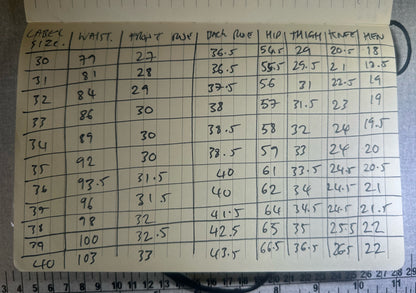 LABEL SIZE. WAIST. FRONT RISE BACK RISE HIP THIGH KNEE HEM
30 79 27 36.5 54.5 29 20.5 18
31 81 28 36.5 55.5 29.5 21 18.5
32 84 29 37.5 56 31 22.5 19
33 86 30 38 57 31.5 23 19
34 89 30 38.5 58 32 24 19.5
35 92 30 38.5 59 33 24 20
36 93.5 31.5 40 61 33.5 24.5 20.5
37 96 31.5 40 62 34 24.5 21
38 98 32 41.5 64 34.5 24.5 21.5
39 100 32.5 42.5 65 35 25.5 22
40 103 33 43.5 66.5 36.5 26.5 22
3 4 5 6 7 8 9 10 11 12 13 14 15 16 17 18 19 20 21 22 23 24 25 26 27 28 29